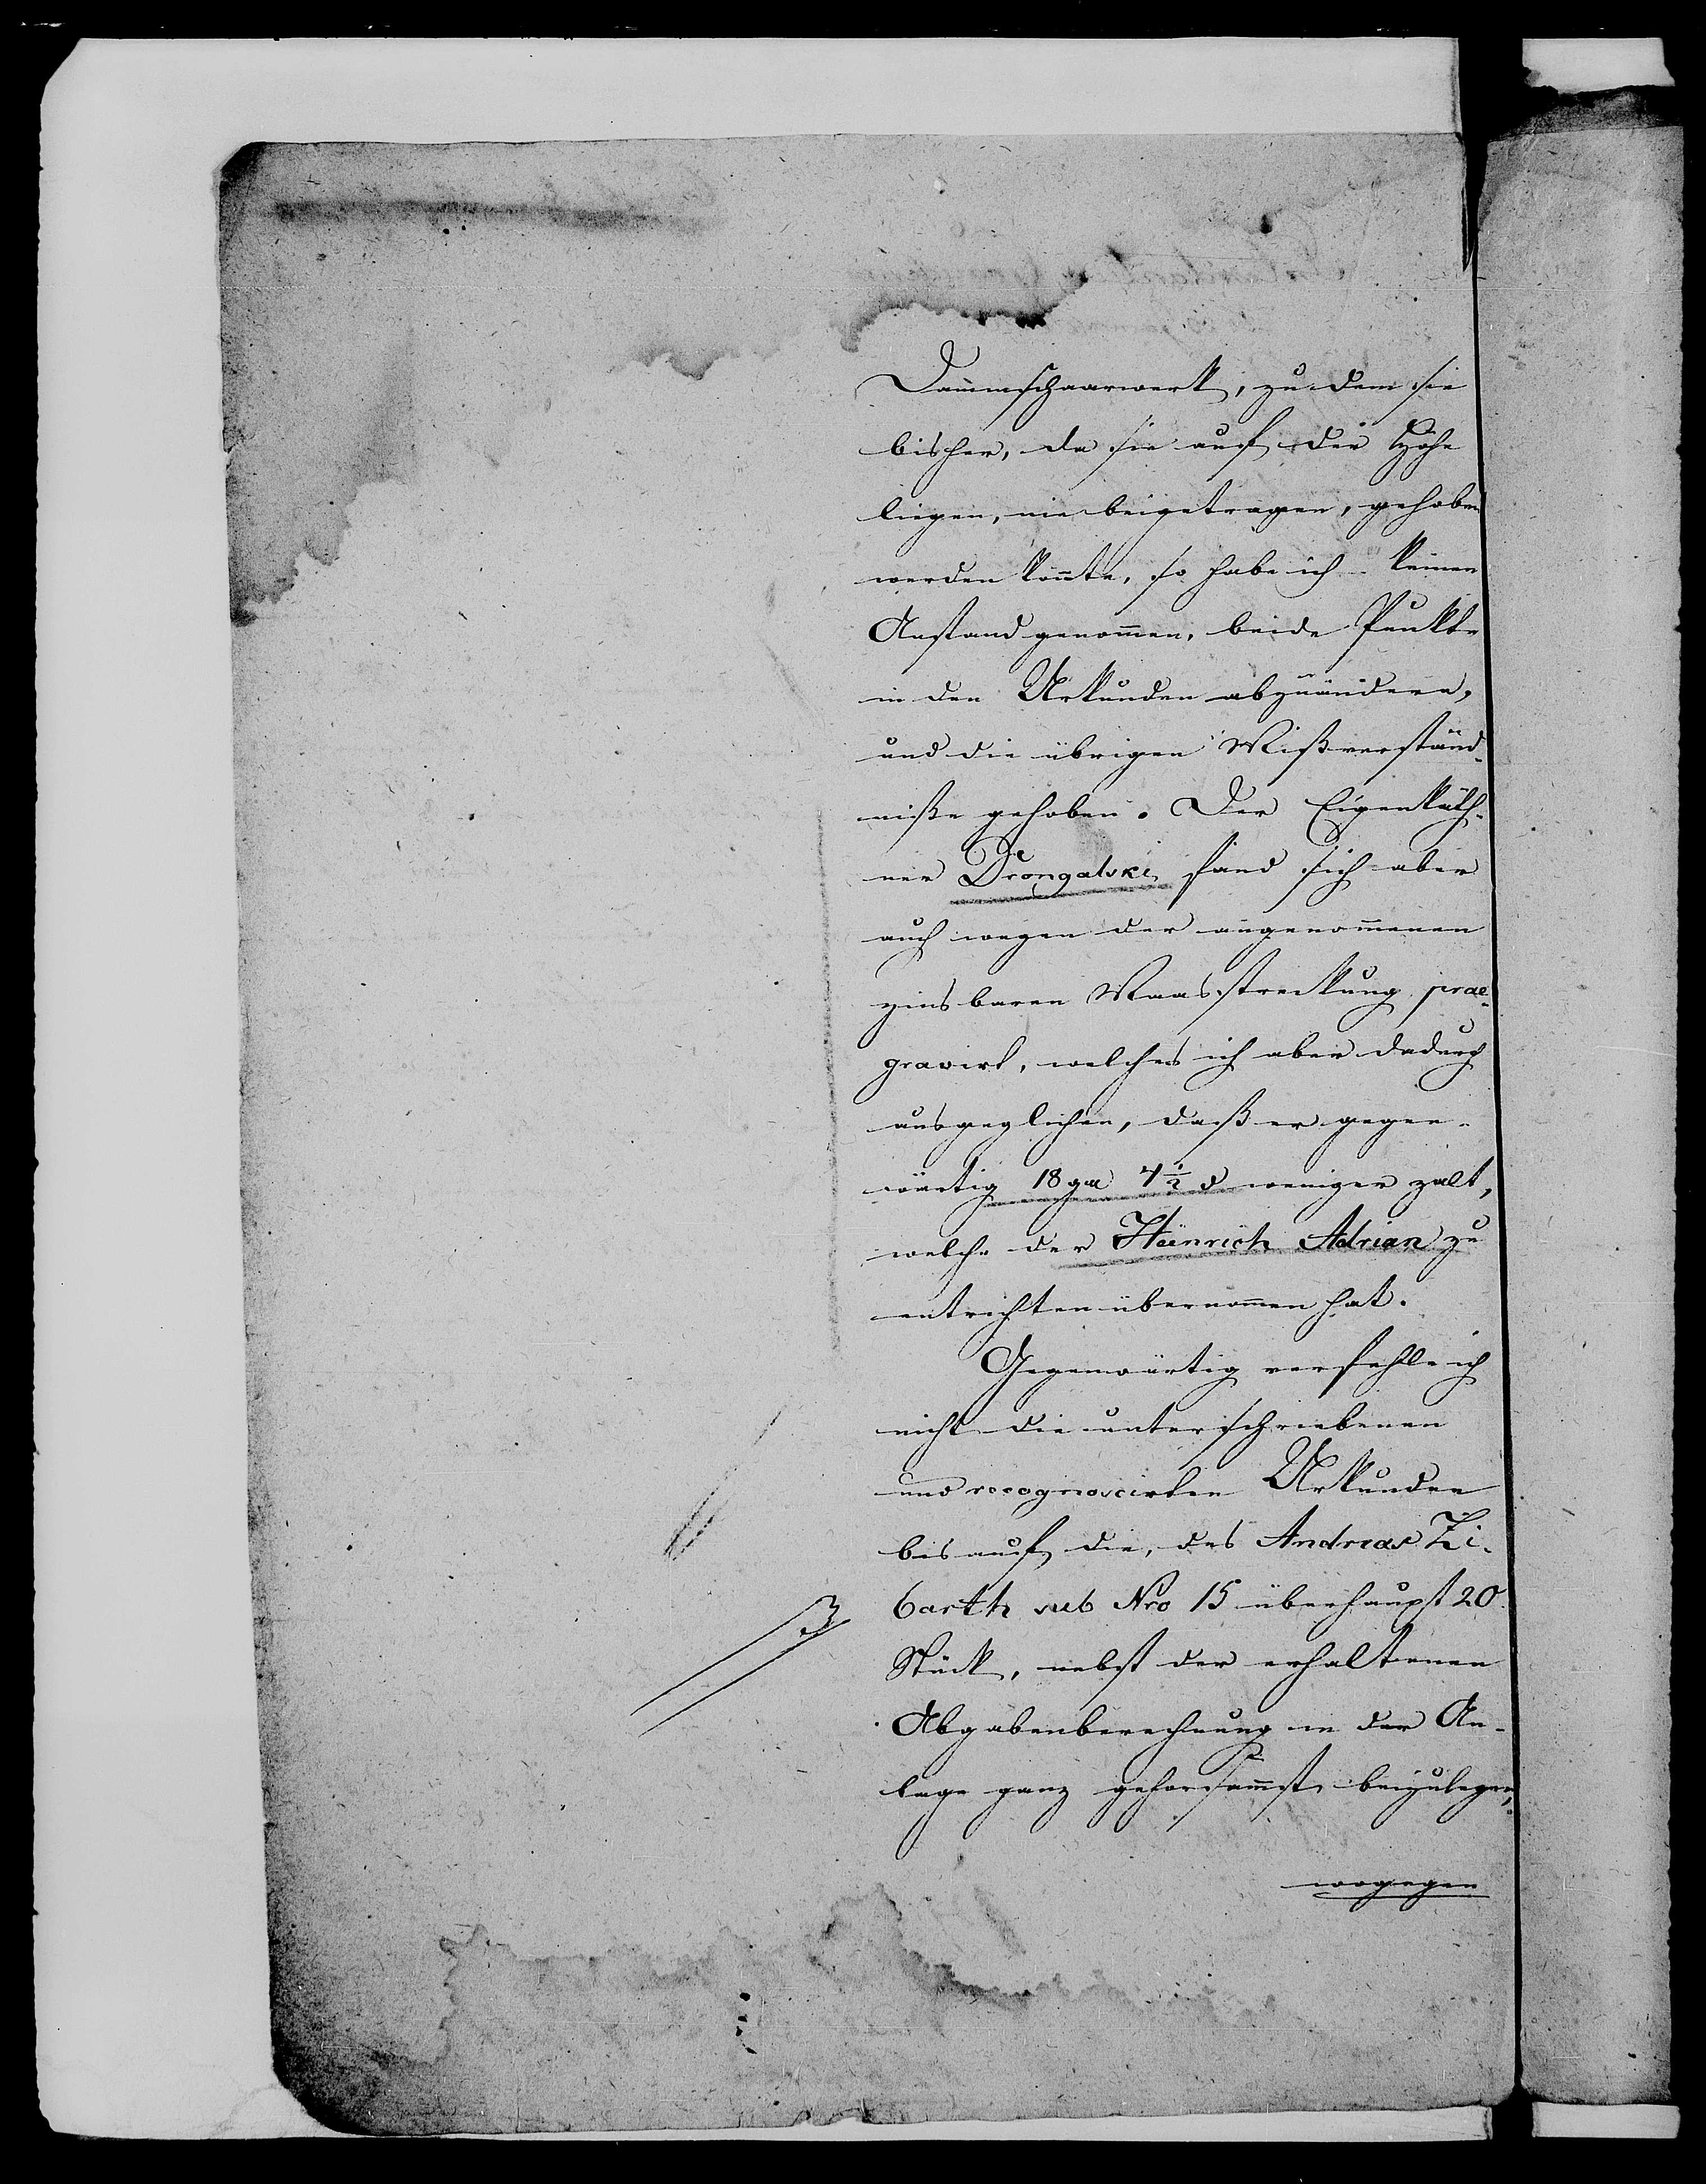 Dammschaarwerk, zu dem sie
bisher, da sie auf der Höhe
liegen, nie beigetragen, gehoben
werden konnte, so habe ich keinen
Anstand genommen, beide Punkte
in den Urkunden abzuändern,
und die übrigen Mißverständ-
niße gehoben. Der Eigenkäth-
ner Drongalski fand sich aber
auch wegen der angenommenen
zinsbaren Maasstreckung prae-
gravirt, welches ich aber dadurch
ausgeglichen, daß er gegen-
wärtig 18 gr 4½ d weniger zalt,
welche der Heinrich Adrian zu
entrichten übernommen hat.
Gegenwärtig verfehle ich
nicht die unterschriebenen
und recognoscirten Urkunden
bis auf die, des Andreas Zi-
barth sub Nro 15 überhaupt 20
Stück, nebst der erhaltenen
Abgabenberechnung in der An-
lage ganz gehorsamst beizulegen,
wogegen